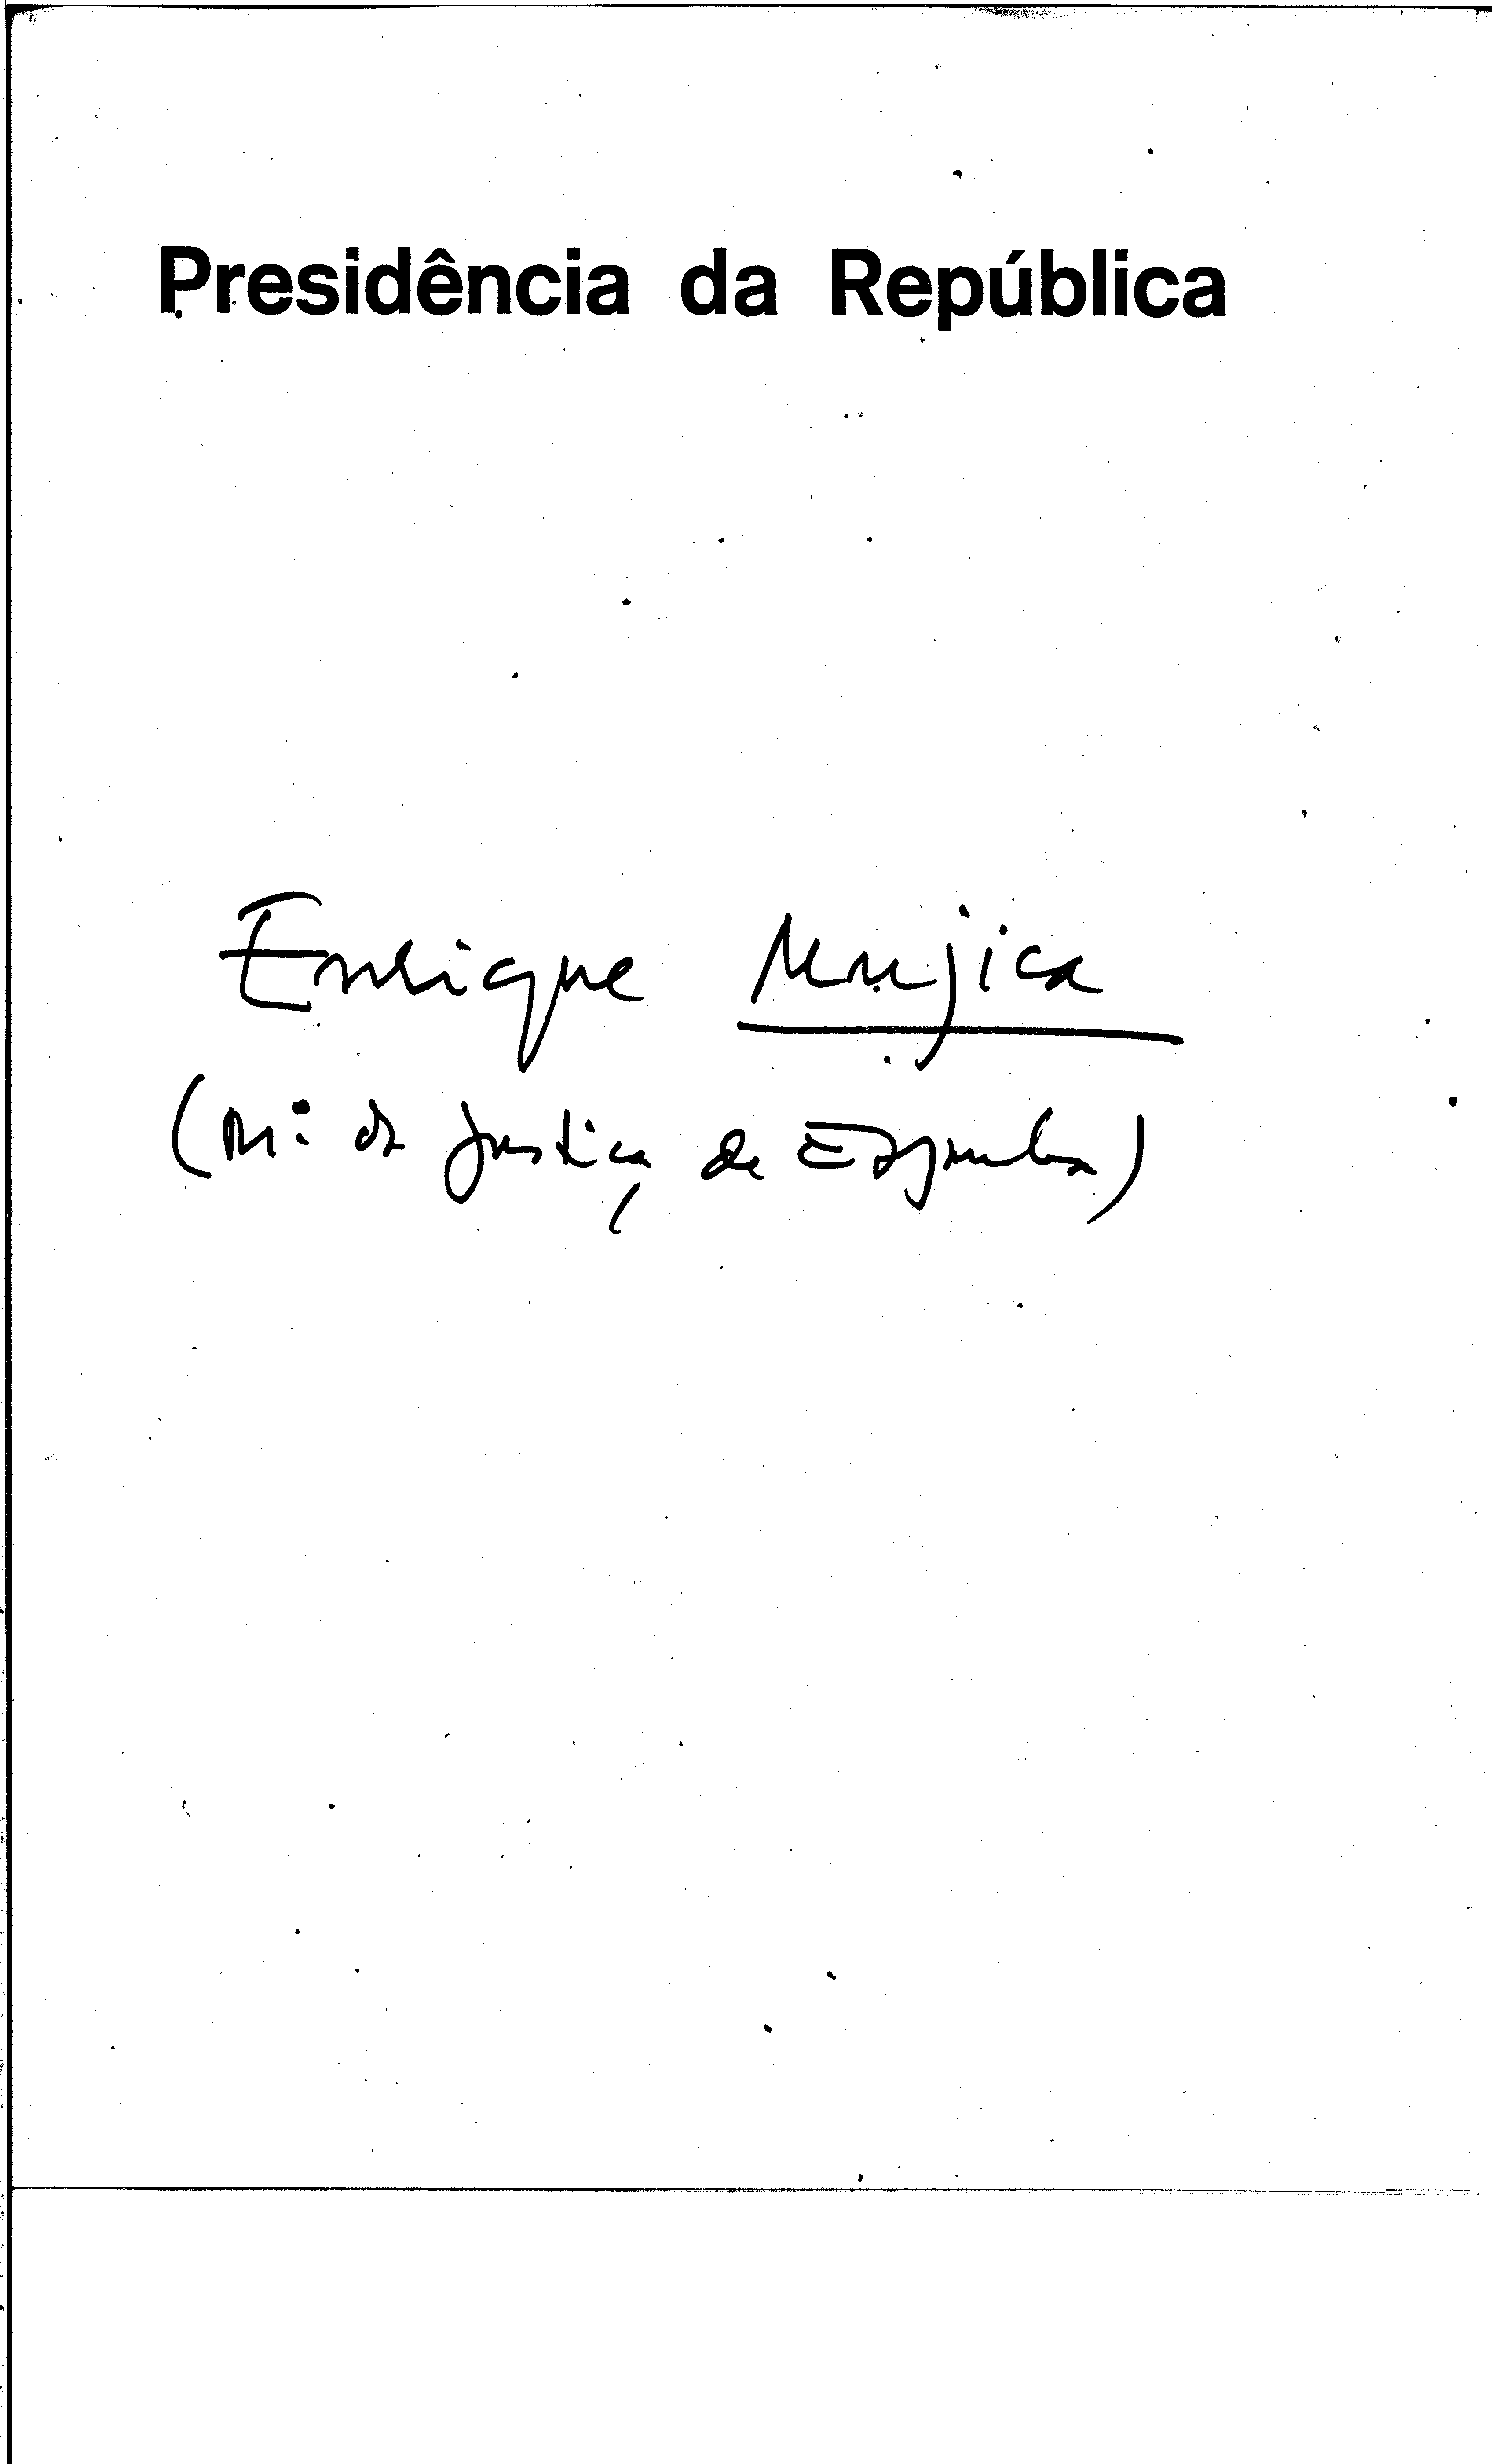 Presidência da República
Enrique Mujica
(Mº da Justiça de Espanha)